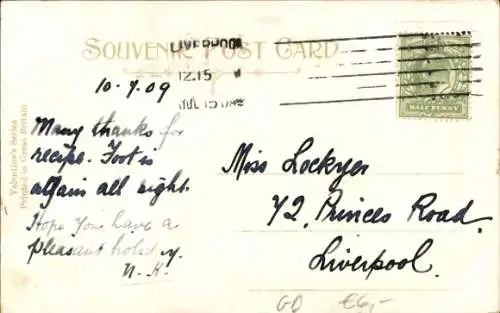 SOUVENIR POST CARD
LIVERPOOL
12.15
JUL 15 09
HALF PENNY
Valentine's Series
Printed in Great Britain
10.7.09
Many thanks for
recipe. Foot is
again all right.
Hope you have a
pleasant holiday.
N.H.
Miss Lockyer
72, Princes Road,
Liverpool.
GD €6,-